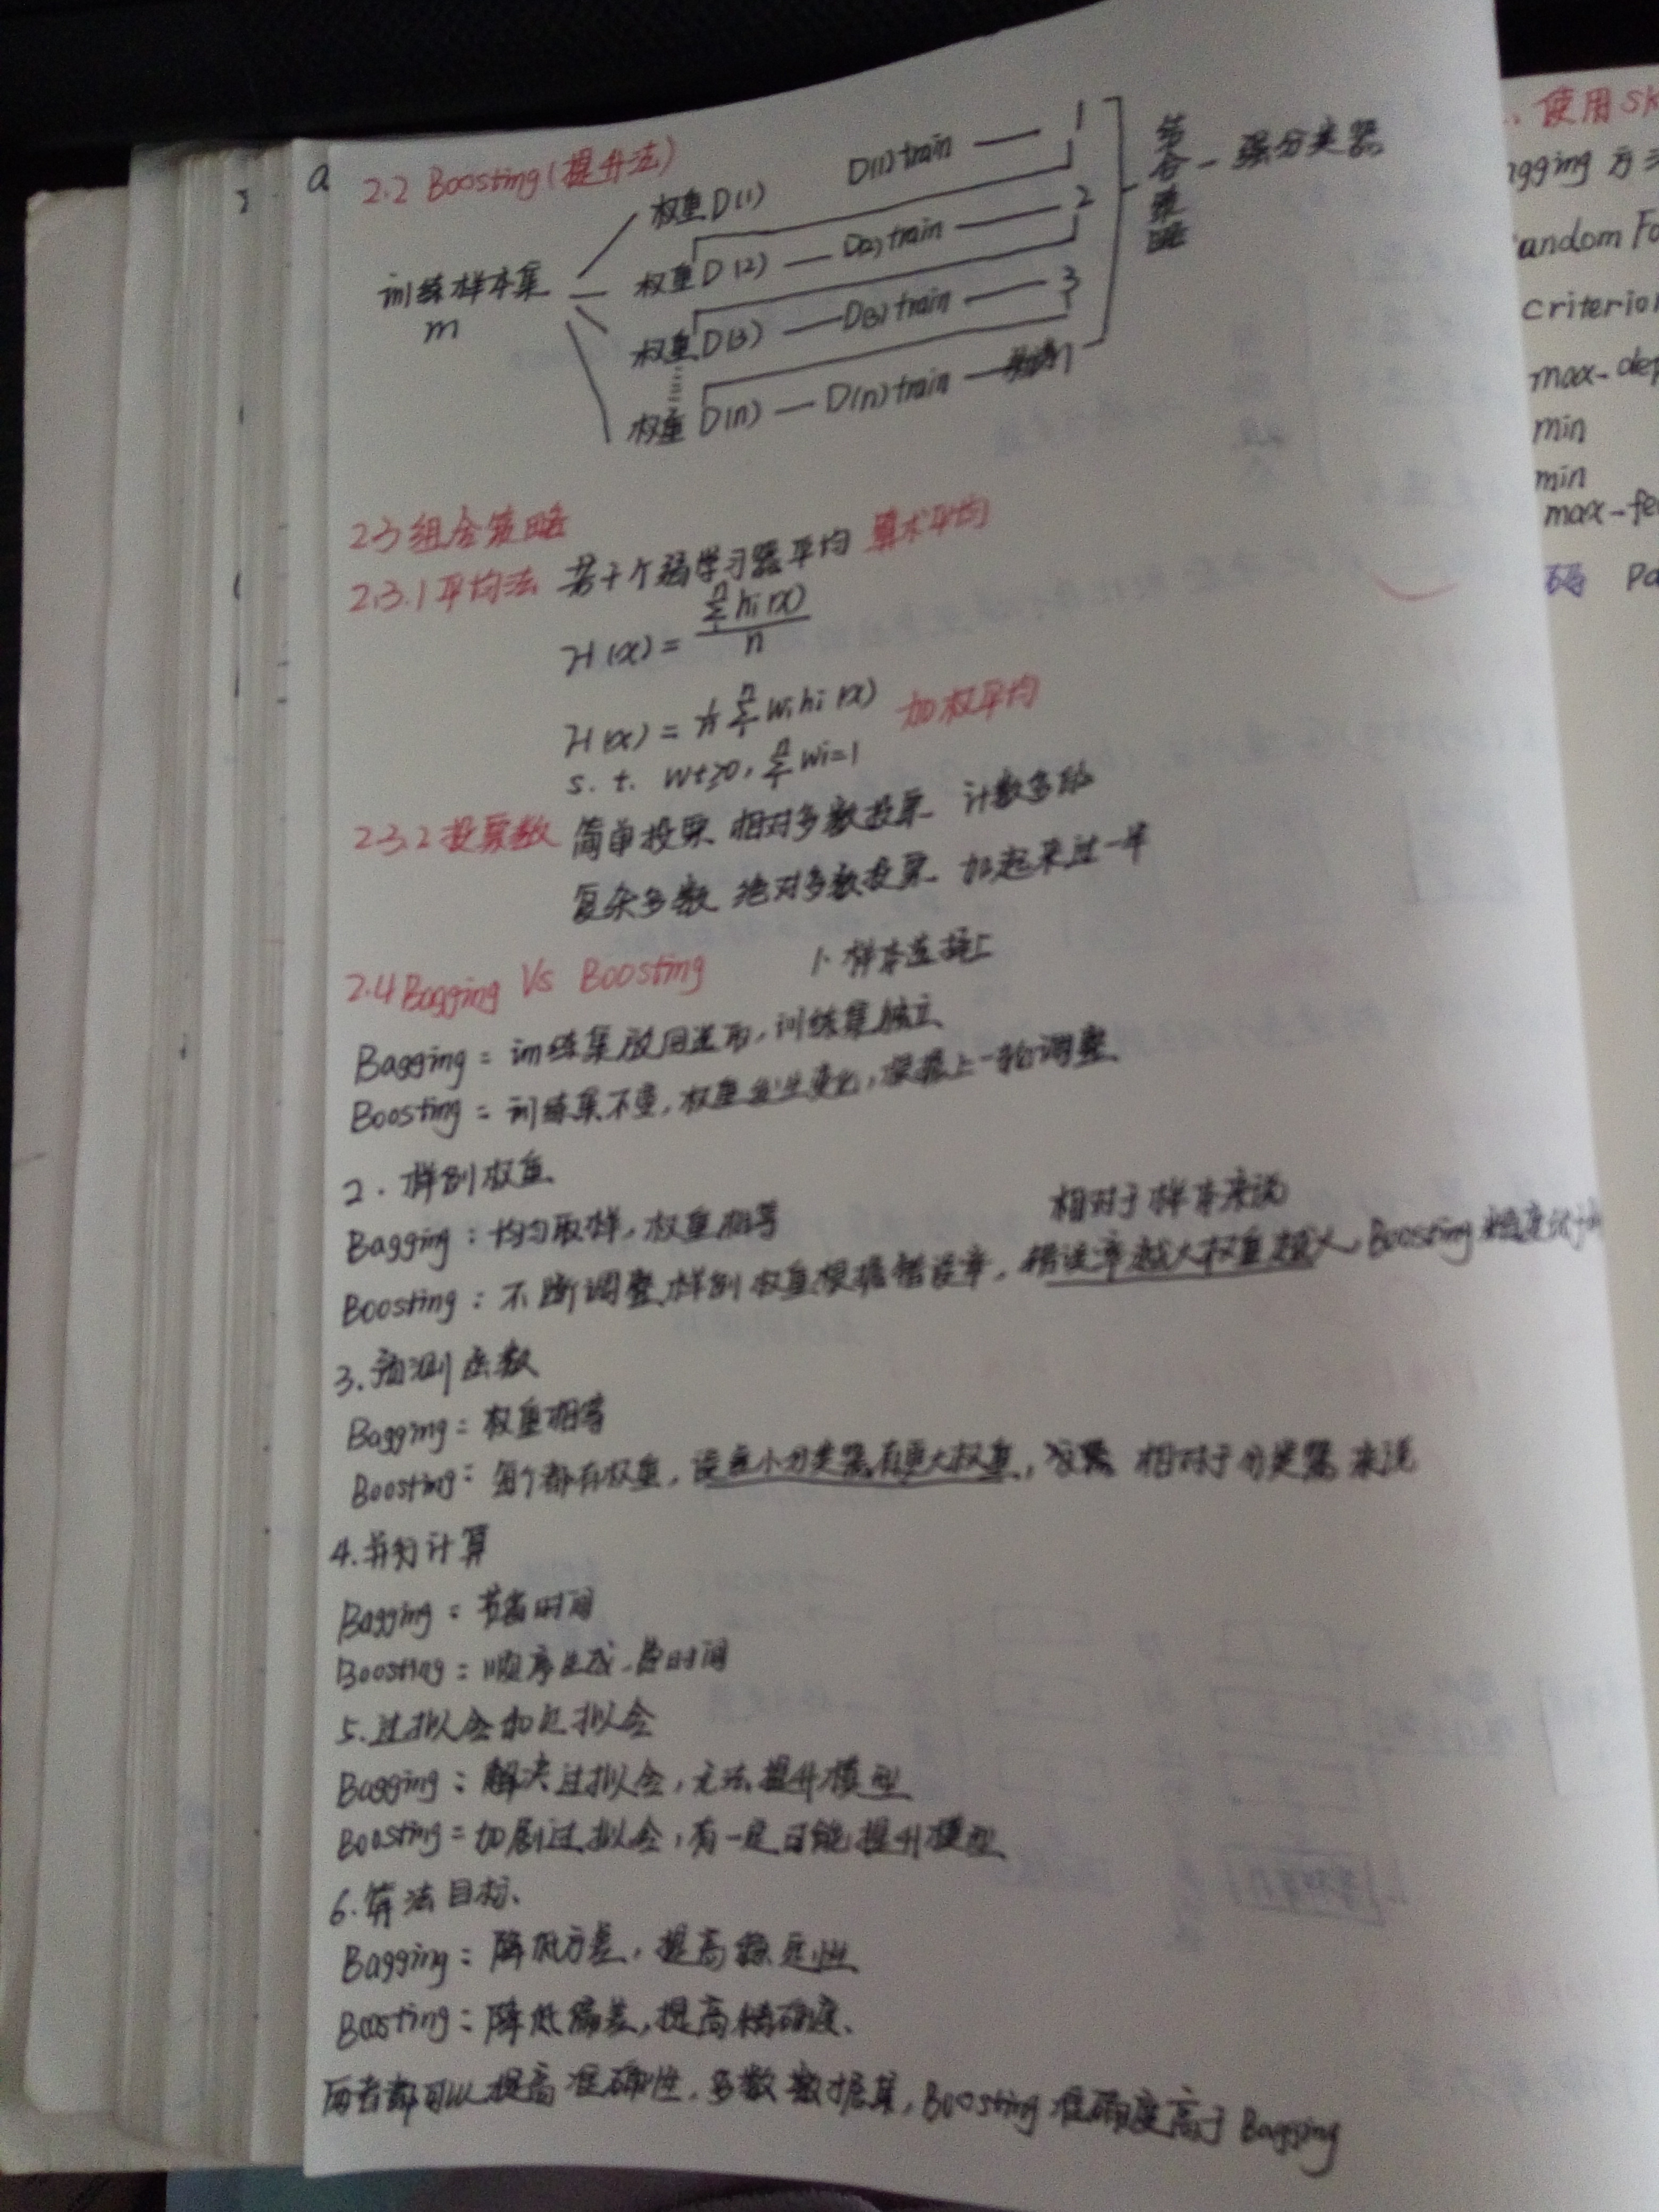 a
2.2 Boosting(提升法)
权重D(1) D(1)train — 1
训练样本集 m
权重D(2) — D(2)train — 2
权重D(3) — D(3)train — 3
权重D(n) — D(n)train —
结合策略 — 强分类器
2.3 组合策略
2.3.1 平均法 若干个弱学习器平均 算术平均
H(x) = Σ hi(x) / n
H(x) = 1/n Σ wihi(x) 加权平均
s.t. wi≥0, Σ wi=1
2.3.2 投票数 简单投票 相对多数投票 计数多的
复杂多数 绝对多数投票 加起来过一半
2.4 Bagging Vs Boosting 1. 样本选择上
Bagging = 训练集放回选取, 训练集独立
Boosting = 训练集不变, 权重发生变化, 根据上一轮调整
2. 样例权重
Bagging: 均匀取样, 权重相等
相对于样本来说
Boosting: 不断调整样例权重根据错误率, 错误率越大权重越大, Boosting 精度
3. 预测函数
Bagging = 权重相等
Boosting: 每个都有权重, 误差小分类器有更大权重, 相对于分类器来说
4. 并行计算
Bagging = 节省时间
Boosting = 顺序生成
5. 过拟合和欠拟合
Bagging: 解决过拟合, 无法提升模型
Boosting = 加剧过拟合, 有一定可能提升模型
6. 算法目标、
Bagging: 降低方差, 提高稳定性
Boosting: 降低偏差, 提高精确度、
两者都可以提高准确性, 多数数据集, Boosting 准确度高于 Bagging
使用sk
agging 方
andom Fo
criterion
max-dep
min
min
max-fea
码 pa